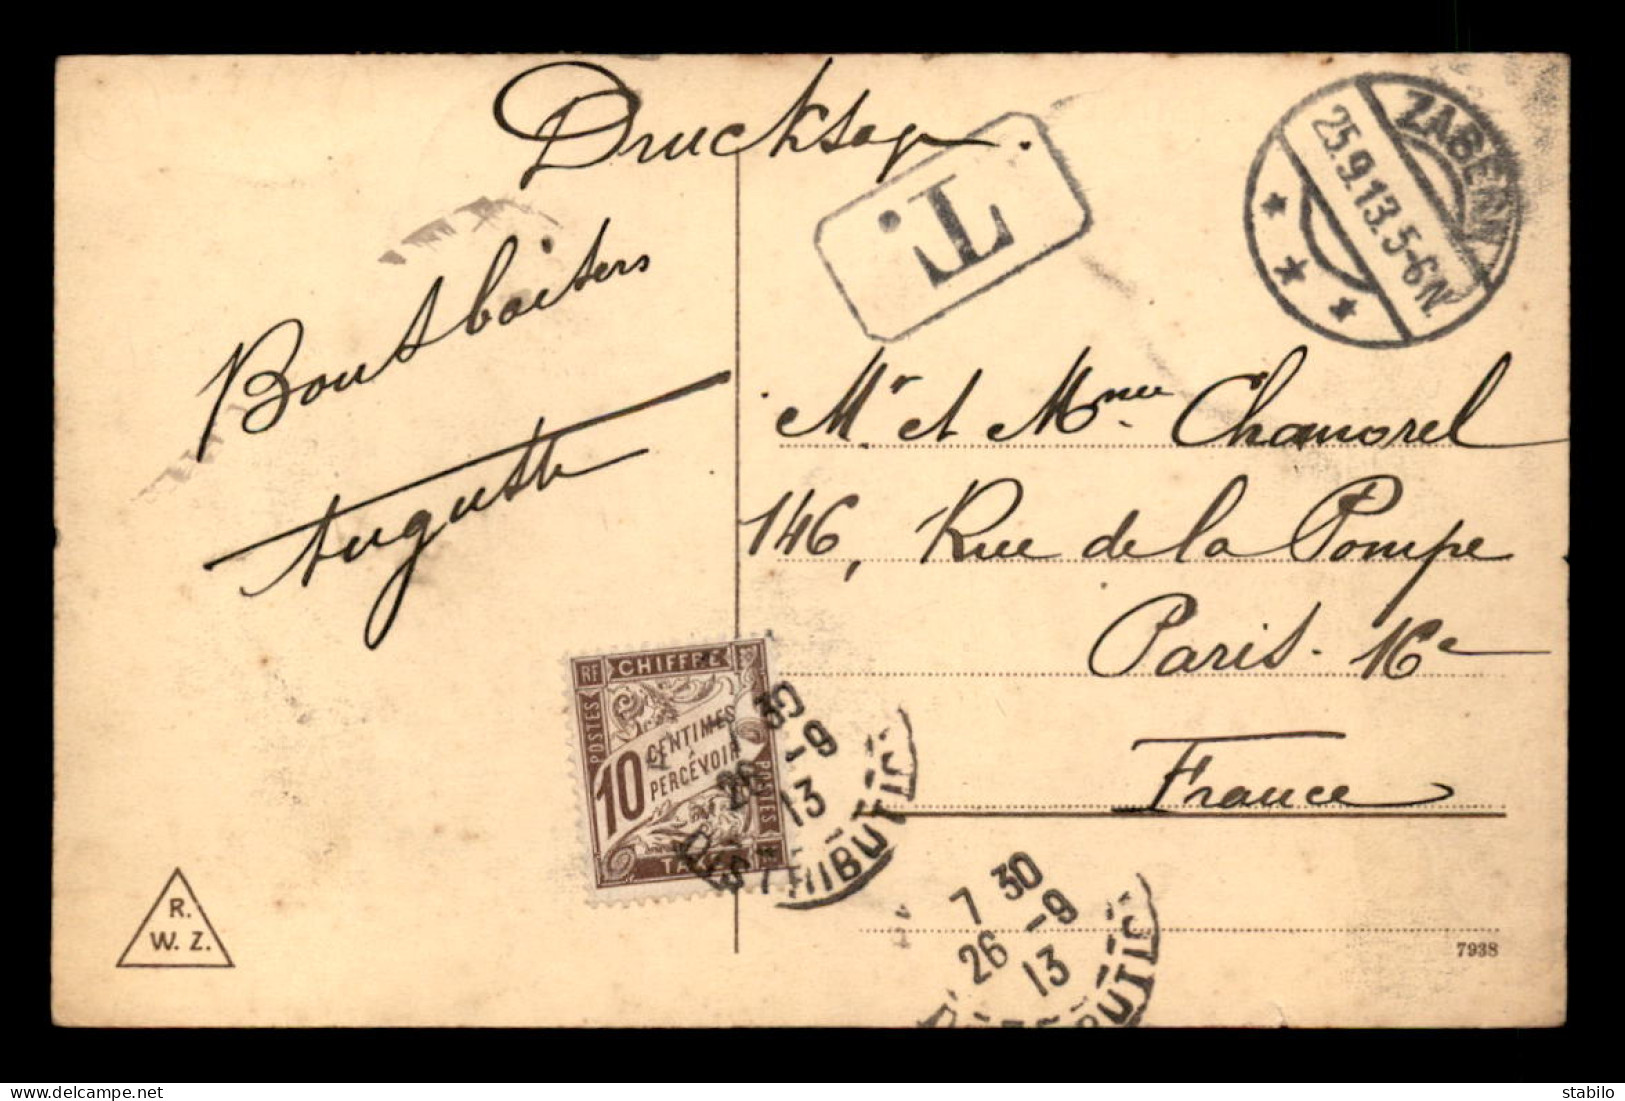 Drucksage.
T.
ZABERN
25.9.13. 5-6 N.
Bons baisers
Auguste
Mr et Mme Chamorel
146, Rue de la Pompe
Paris. 16e
France
RF CHIFFRE
POSTES
10 CENTIMES
À
PERCEVOIR
POSTES
TAXE
26 -9
13
DISTRIBUTI
7 30
26 -9
13
R.
W. Z.
7938
stabilo
Delcampe.net